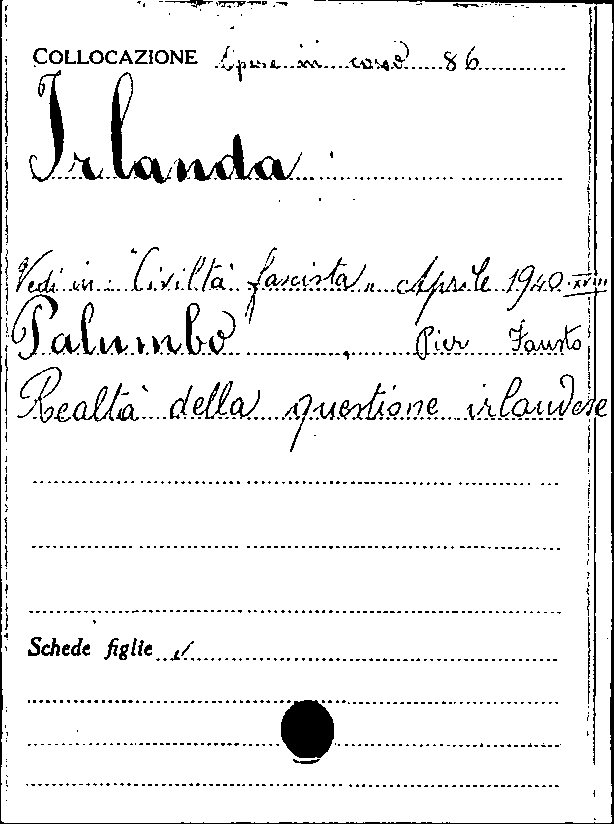 COLLOCAZIONE Opere in corso 86
Irlanda
Vedi in "Civiltà fascista„ Aprile 1940-XVIII
Palumbo, Pier Fausto
Realtà della questione irlandese
Schede figlie